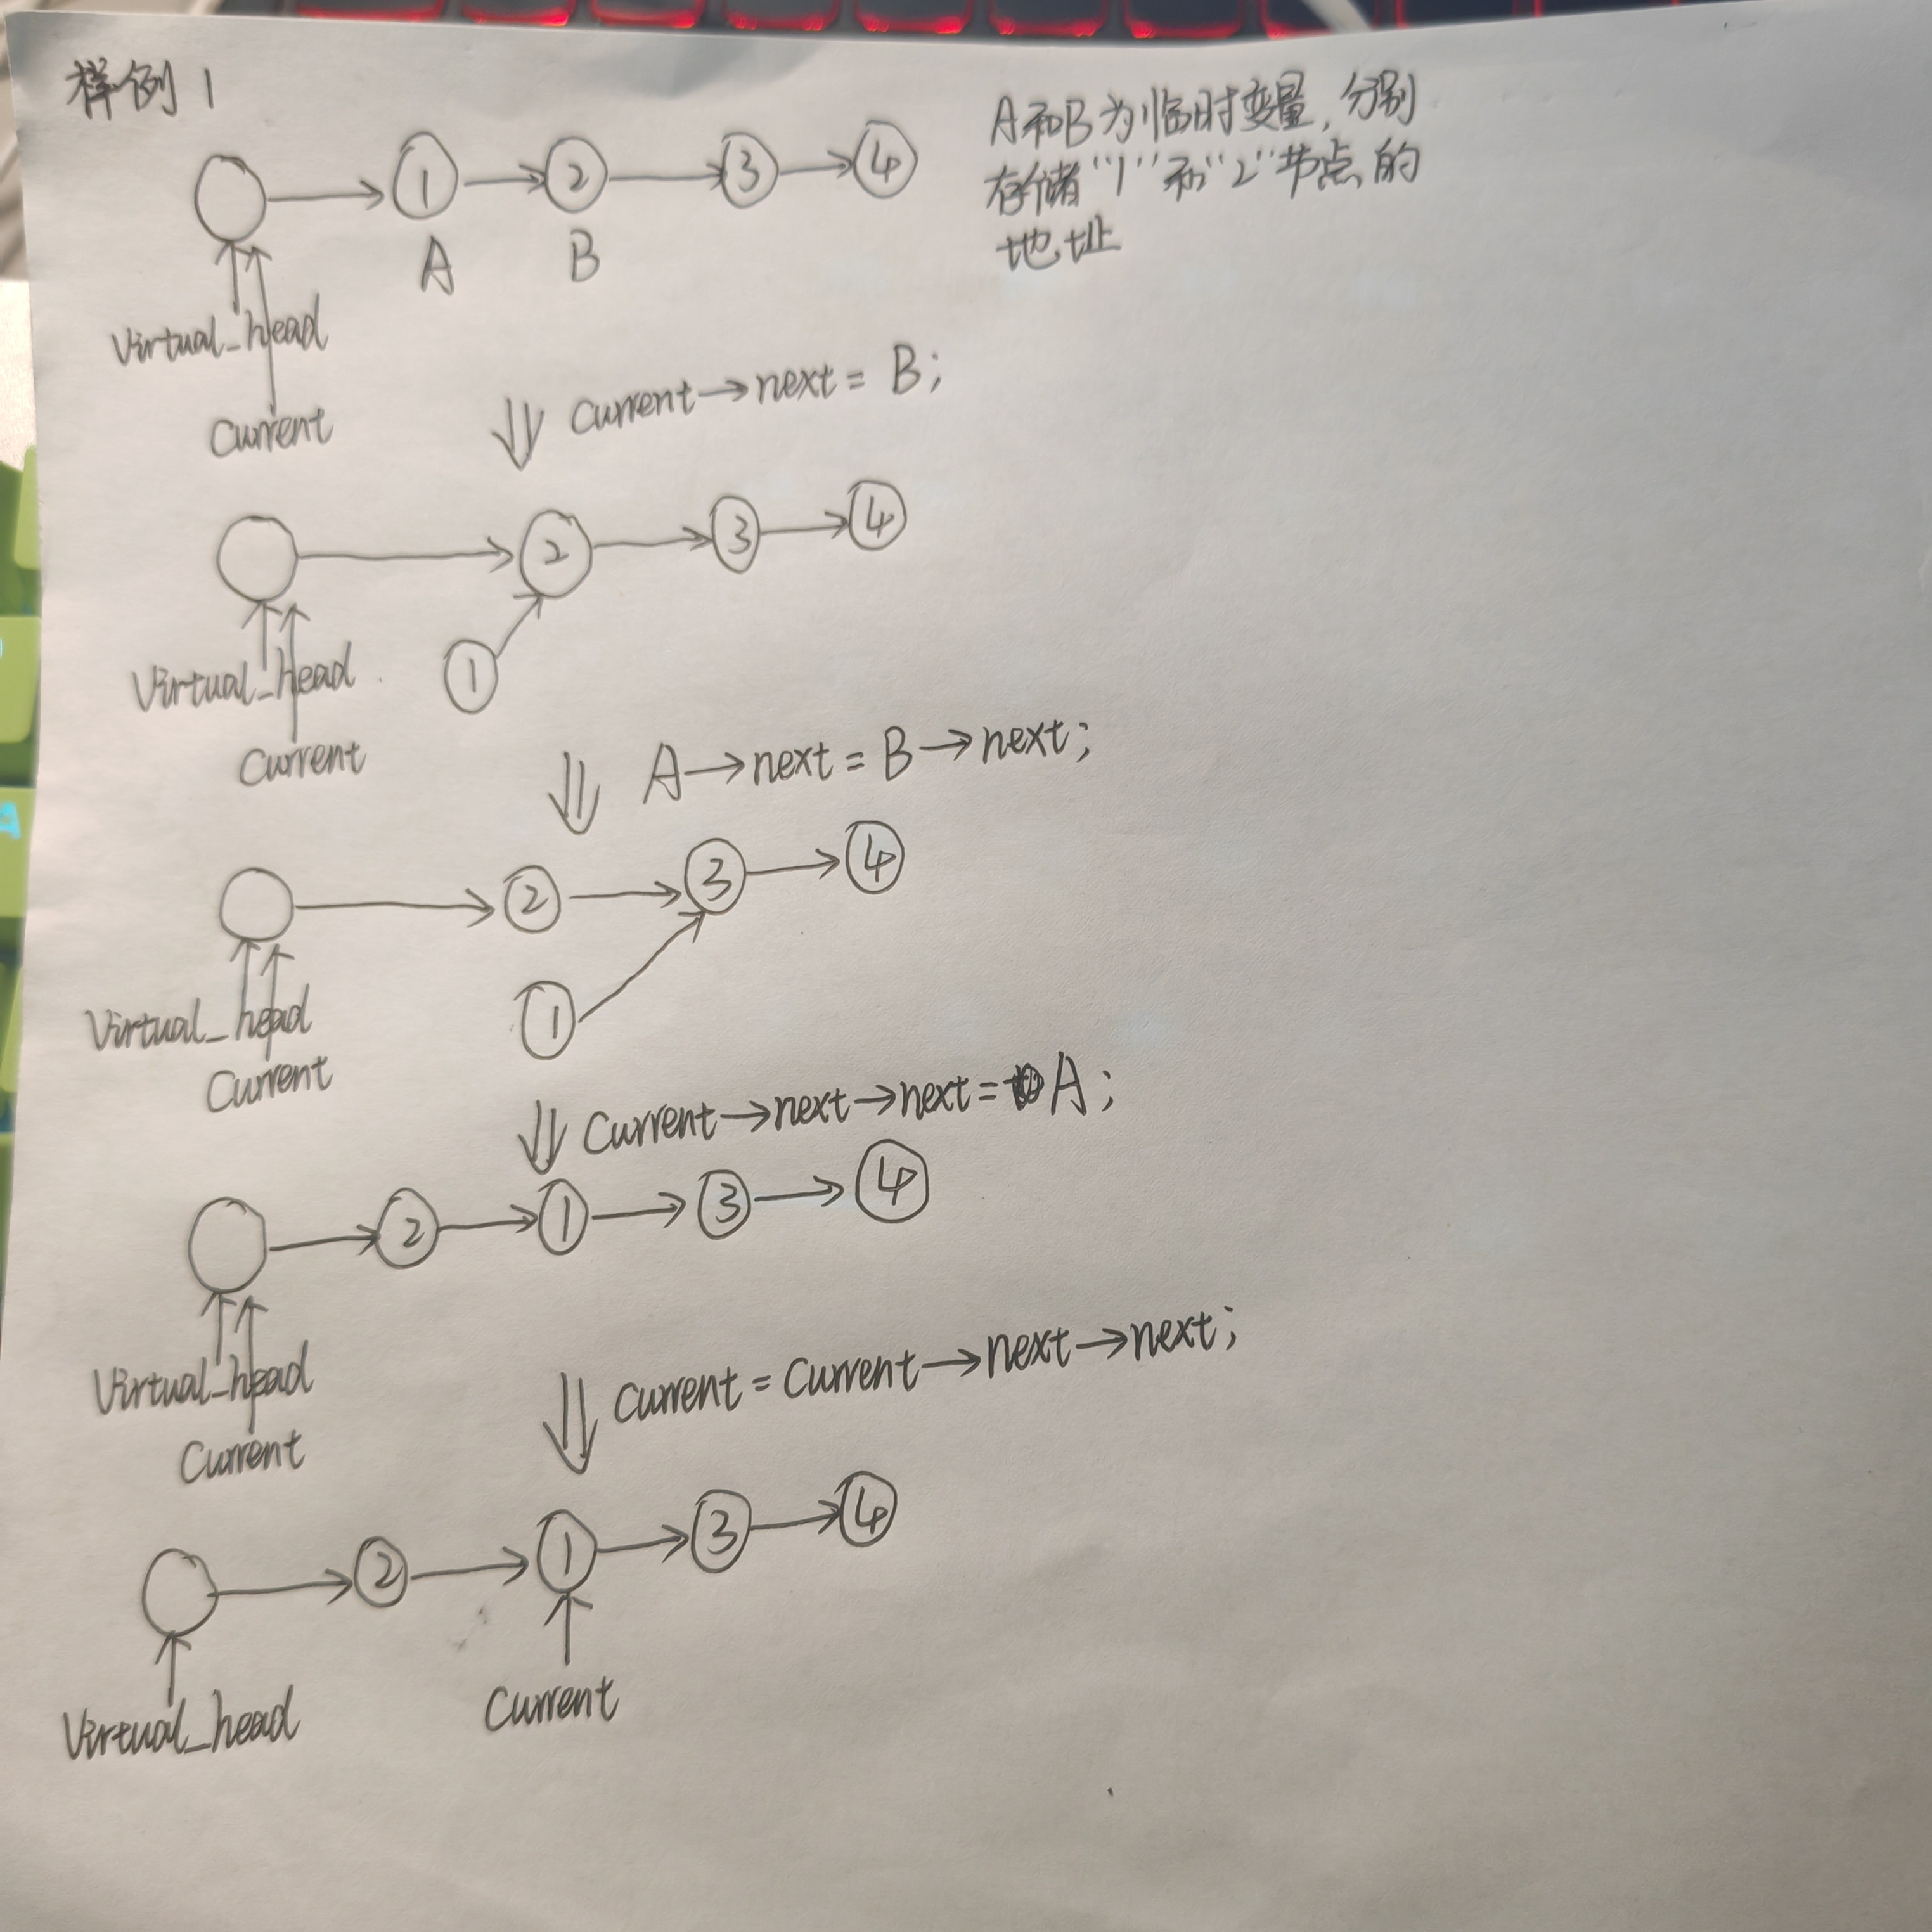 样例1
A和B为临时变量,分别
存储"1"和"2"节点的
地址
1 → 2 → 3 → 4
A B
Virtual_head
Current
Current→next = B;
2 → 3 → 4
1
Virtual_head
Current
A→next = B→next;
2 → 3 → 4
1
Virtual_head
Current
Current→next→next = A;
2 → 1 → 3 → 4
Virtual_head
Current
Current = Current→next→next;
2 → 1 → 3 → 4
Virtual_head
Current